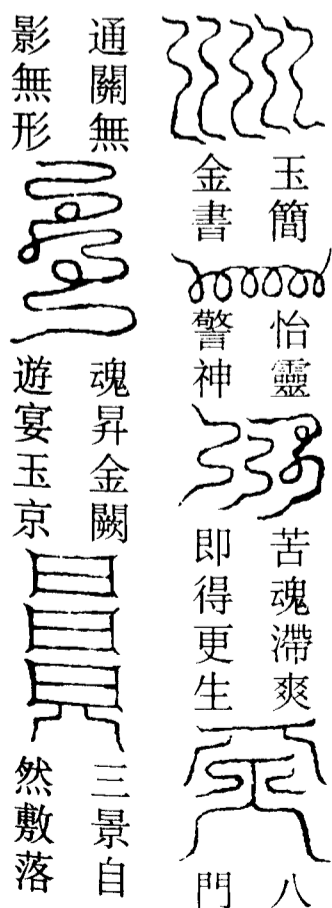 玉簡
金書
怡靈
警神
苦魂滯爽
即得更生
八
門
通關無
影無形
魂昇金闕
遊宴玉京
三景自
然敷落